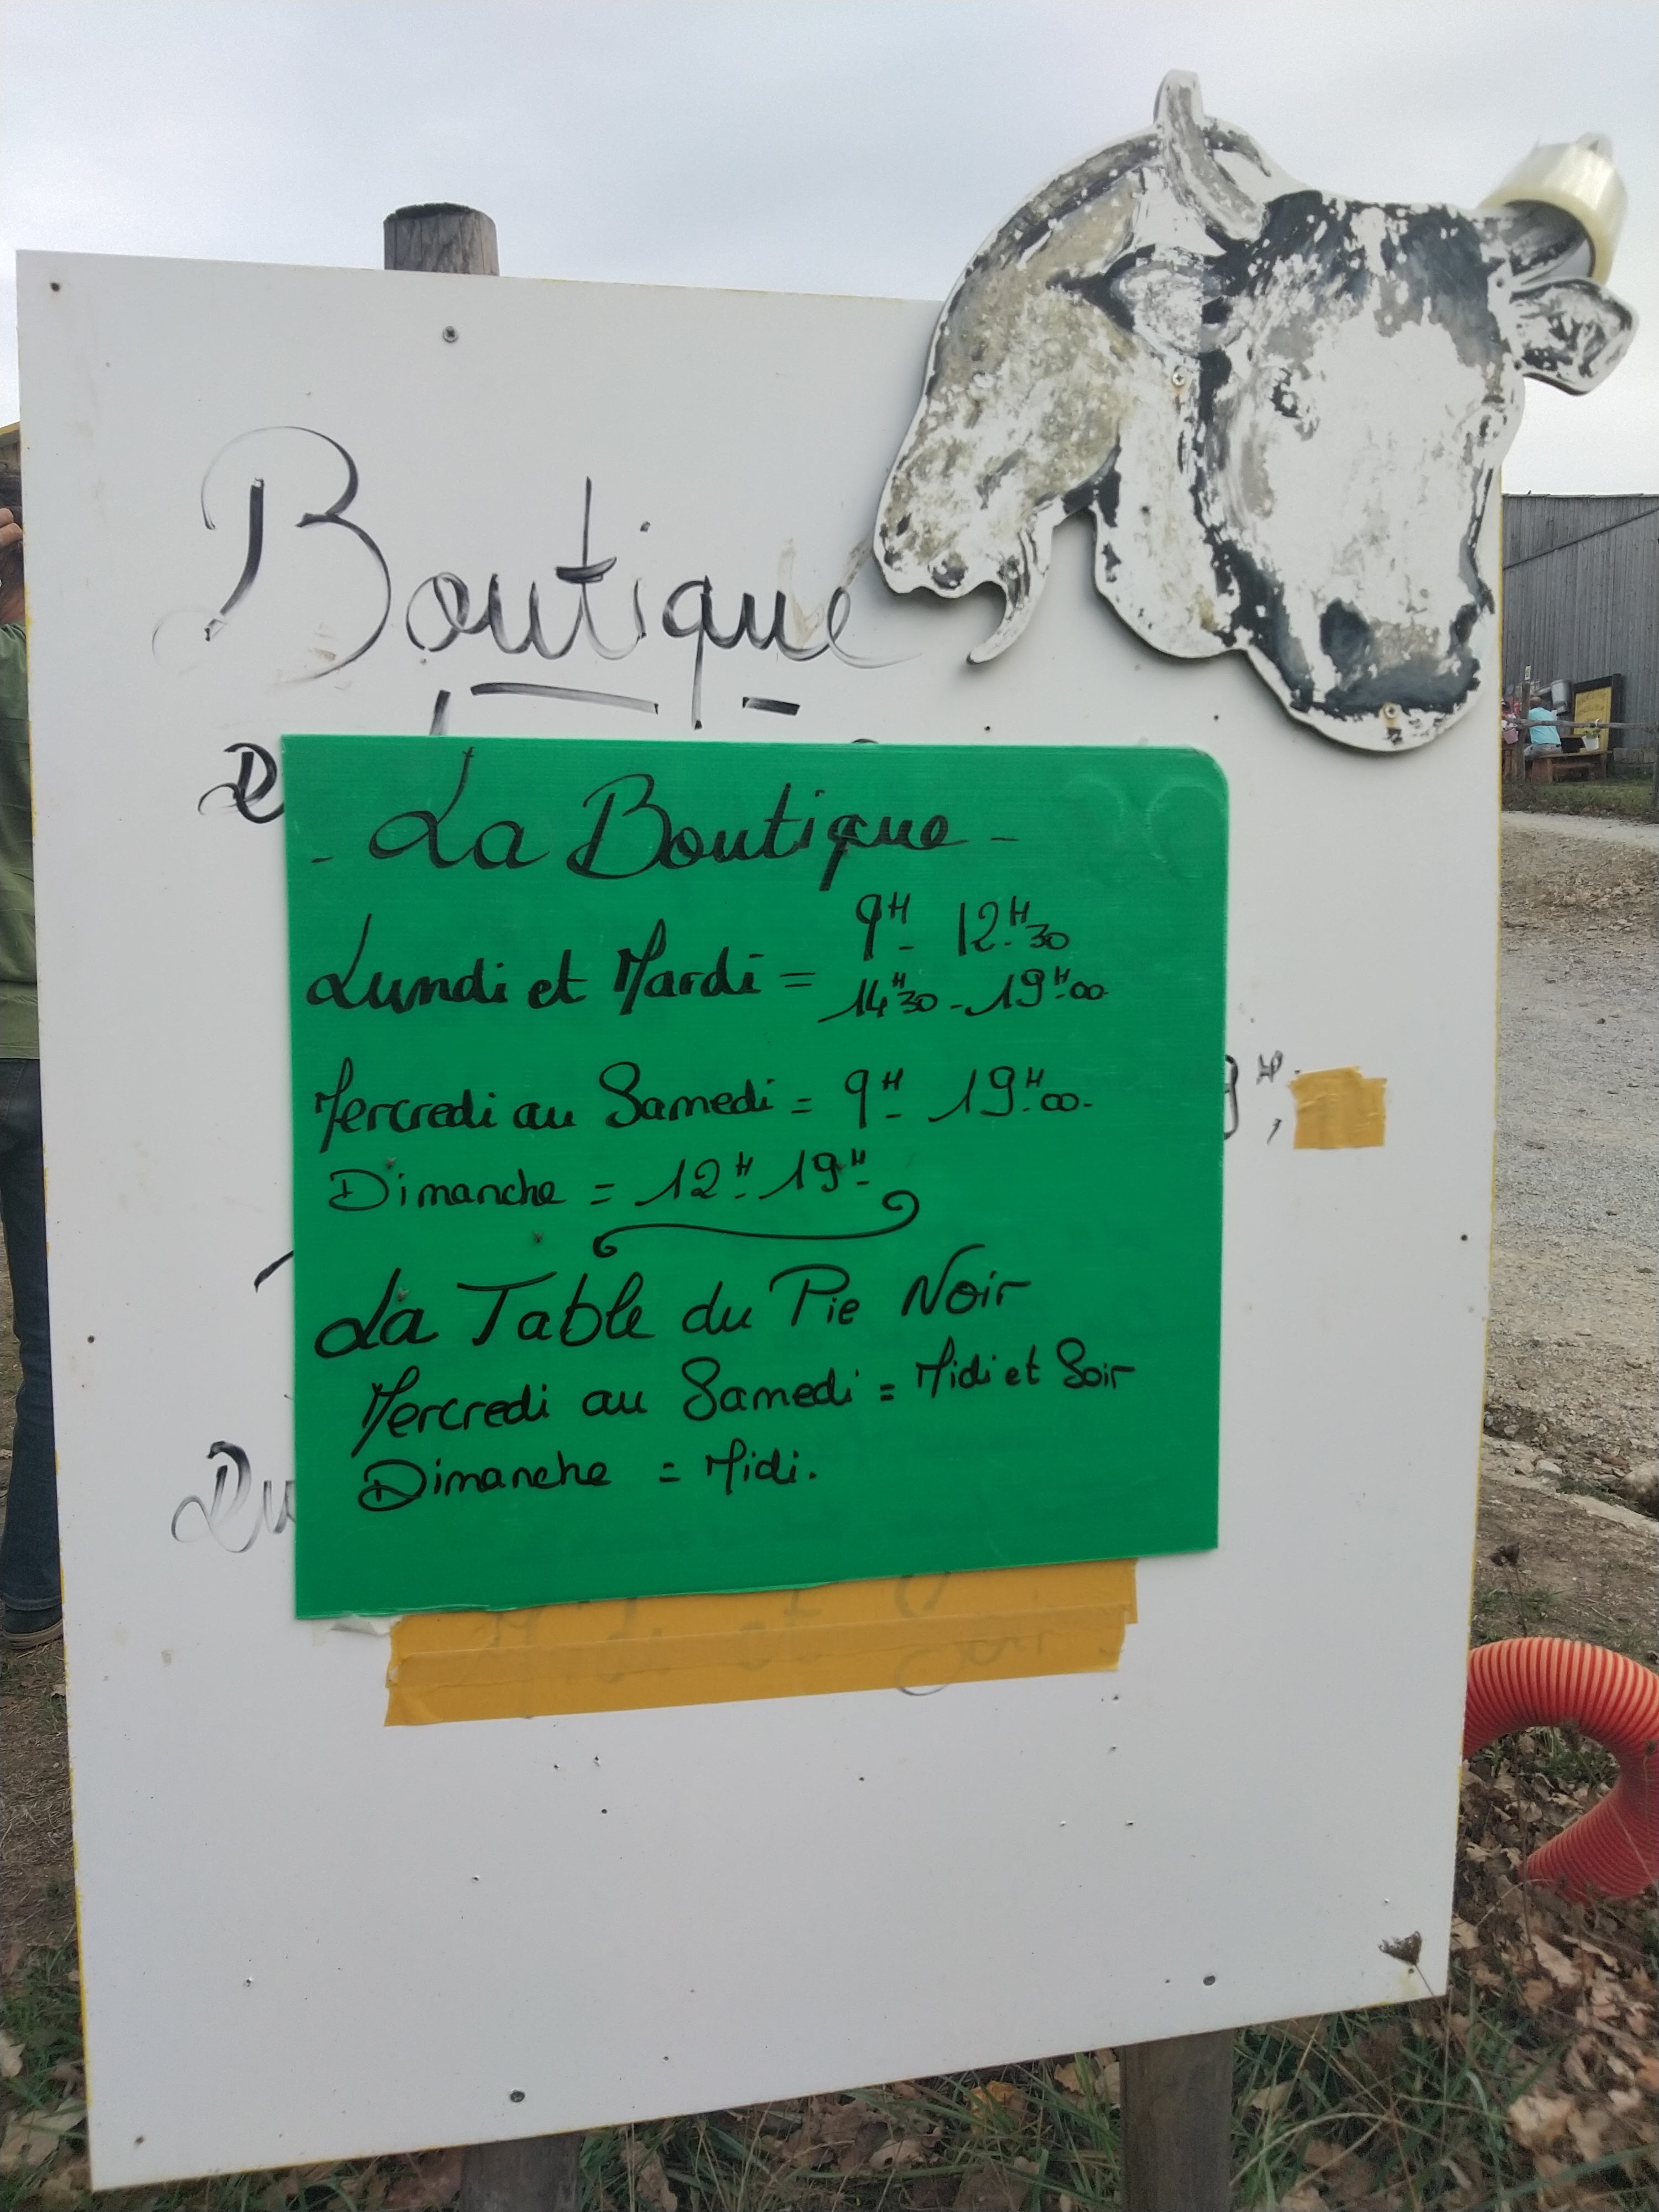 Boutique
- La Boutique -
Lundi et Mardi = 9H - 12H30
14H30 - 19H00
Mercredi au Samedi = 9H - 19H00.
Dimanche = 12H 19H
La Table du Pie Noir
Mercredi au Samedi = Midi et Soir
Dimanche = Midi.